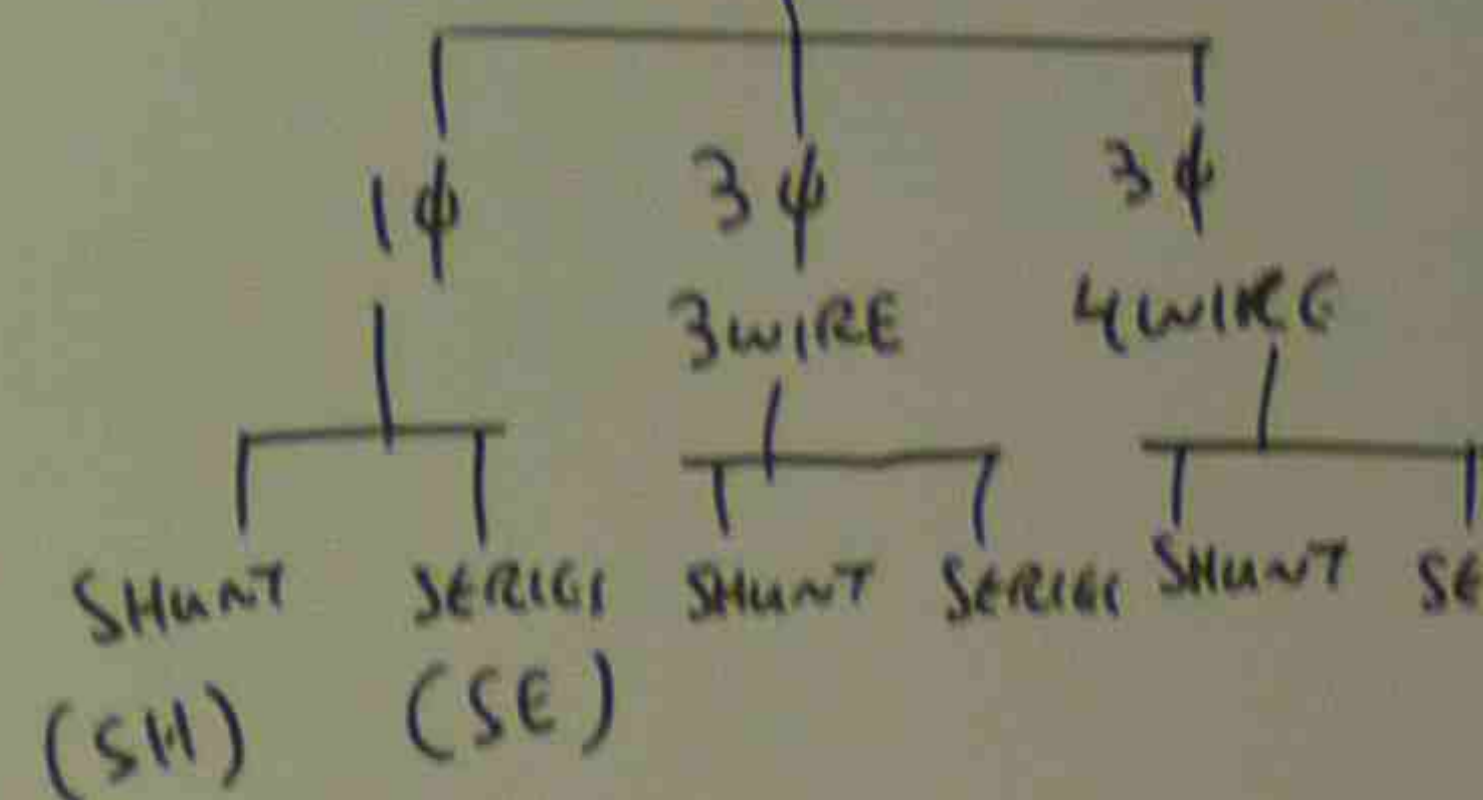 1ϕ 3ϕ 3ϕ
3WIRE 4WIRE
SHUNT SERIES SHUNT SERIES SHUNT SE
(SH) (SE)